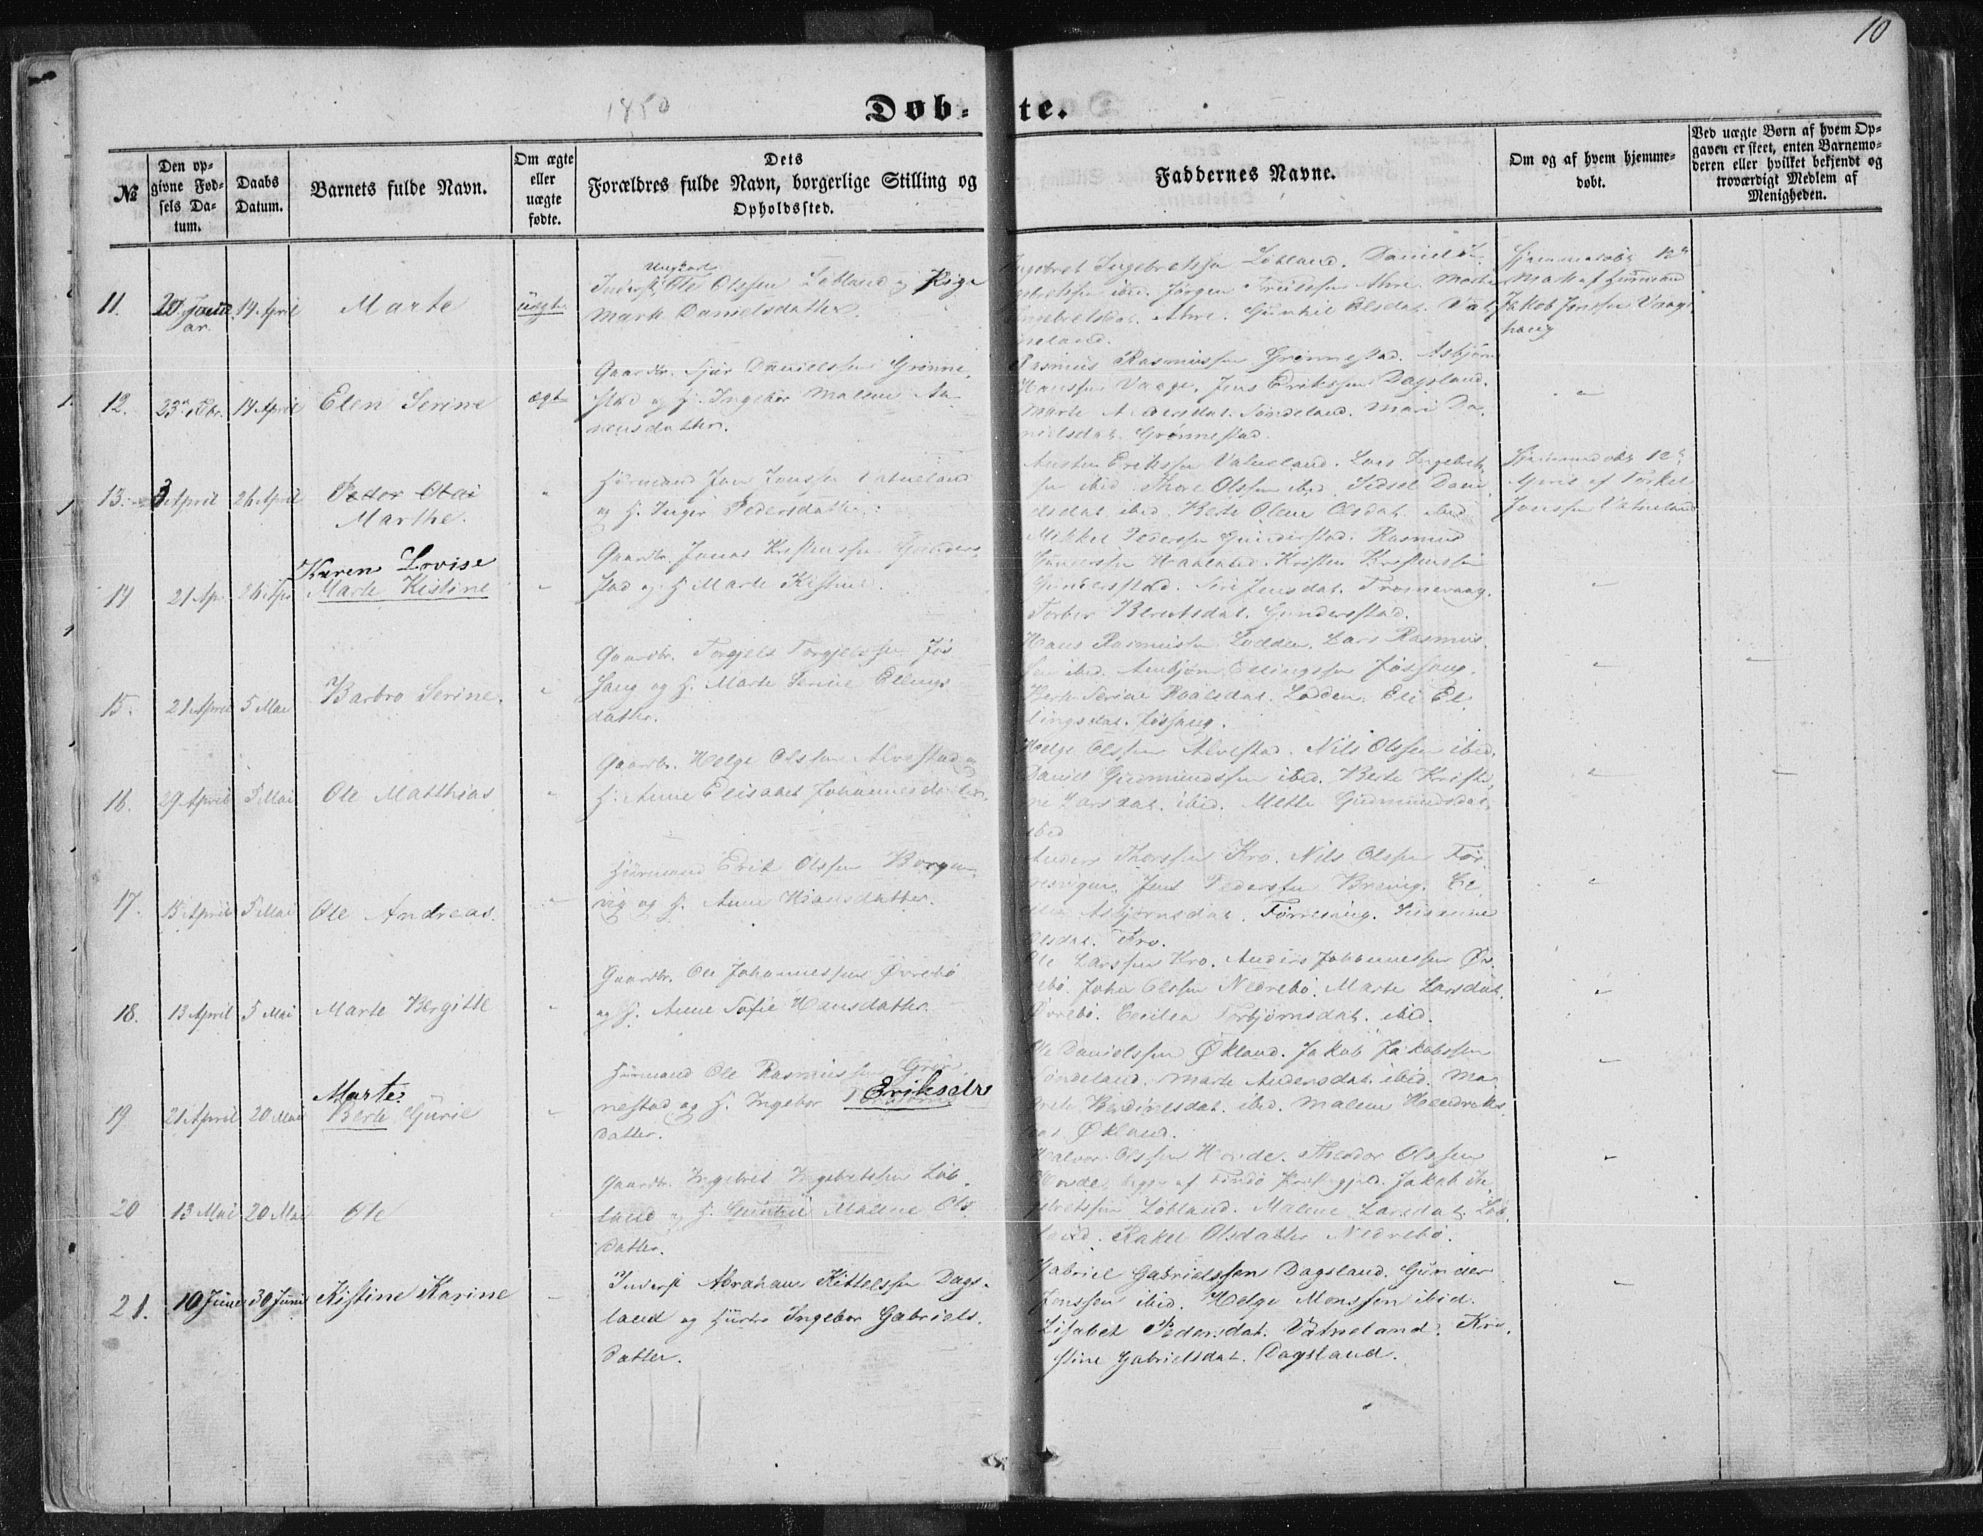 10
1850
Døb-te.
№
Den op-
givne Fød-
sels Da-
tum.
Daabs
Datum.
Barnets fulde Navn.
Om ægte
eller
uægte
fødte.
Dets
Forældres fulde Navn, borgerlige Stilling og
Opholdssted.
Faddernes Navne.
Om og af hvem hjemme-
døbt.
Ved uægte Børn af hvem Op-
gaven er skeet, enten Barnemo-
deren eller hvilket bekjendt og
troværdigt Medlem af
Menigheden.
11.
20 Janu
ar.
14 April
Marte
uægte
Ungkarl
Inderst Ole Olssen Løbland og Pige
Marte Danielsdatter.
Ingebret Ingebretssen Løbland. Daniel
ibid. Jørgen Ahre. Marte
Ahre. Gunhil Olsdat. Vat
neland.
Hjemmedøbt 12
Marts af Huusmand
Jakob Jonssen Vaags
haug
12.
23 Febr.
14 April
Elen Serine
ægte
Gaardbr. Sjur Danielssen Grønne-
stad og H. Ingebor Malene Aa-
nensdatter.
Rasmus Rasmussen Grønnestad. Asbjørn
Hanssen Vaage. Jens Erikssen Dagsland.
Marte Andersdat. Søndeland. Mari Da-
nielsdat. Grønnestad.
"
13.
3 April
26 April
Peder Olai
Marthe.
"
Huusmand Jon Jonssen Vatneland
og H. Inger Pedersdatter.
Austen Erikssen Vatneland. Lars Ingebret-
sen ibid. Thore Olssen ibid. Sidsel Dani-
elsdat. ibid. Berte Olene Olsdat. ibid.
Hjemmedøbt 12
April af Torkel
Jonssen Vatneland
14
21 Apr
26 Apr
Karen Lovise
Marte Kistine
"
Gaardbr. Jonas Kristenssen Gunders-
stad og H. Marte Kistine
Mikkel Pedersen Gunderstad. Rasmus
Gunderssen Kristen Kristenssen
Gunderstad. Siri Jensdat.
Torbor Berntsdat. Gunderstad.
"
15.
21 April
5 Mai
Barbro Serine.
"
Gaardbr. Torgjels Torgjelssen Fos
sang og H. Marte Serine Ellings
datter.
Hans Rasmussen Lodden. Lars Rasmus-
sen ibid. Anbjørn Ellingssen Fossang.
Berte Serine Roalsdat. Lodden. Eli El-
lingsdat. Fossang.
"
"
16.
29 April
5 Mai
Ole Matthias
"
Gaardbr. Helge Olssen Alvestad og
H. Anne Elisabet Johannesdatter.
Helge Olssen Alvestad. Nils Olssen ibid.
Daniel Gudmundssen ibid. Berte Kristi-
ne Larsdat. ibid. Mette Gudmundsdat.
ibid
"
"
17.
15 April
5 Mai
Ole Andreas.
"
Huusmand Erik Olssen Borgen-
vig og H. Anne Hansdatter.
Anders Thorssen Kro. Nils Olssen Før-
resvigen. Jens Pederssen
Asbjørnsdat. Førresvig. Susanne
Olsdat. Kro.
"
18.
13 April
5 Mai
Marte Bergitte
"
Gaardbr. Ole Johannessen Øvrebø
og H. Anne Sofie Hansdatter.
Ole Larssen Kro. Anders Johannessen Øv-
rebø. John Olssen Nedrebø. Marte Larsdat.
Øvrebø. Cecilea Torbjørnsdat. ibid.
"
19
21 April
20 Mai
Marte.
Berte Gurie
"
Huusmand Ole Rasmussen Grøn-
nestad og H. Ingebor Eriksdtr
datter.
Ole Danielssen Økland. Jakob Jakobssen
Søndeland. Marte Andersdat. ibid. Ma-
grete ibid. Malene Hendriks-
dat. Økland.
"
20
13 Mai
20 Mai
Ole
Gaardbr. Ingebret Ingebretssen Løb-
land og H. Gunhil Malene Ols
datter.
Halvor Olssen Hovde. Theodor Olssen
Hovde, begge af Findø Præstegjeld. Jakob In-
gebretssen Løbland. Malene Larsdat. Løb-
land. Rakel Olsdatter Nedrebø.
"
21.
10 Juni
30 Juni
Kistine Karine
"
Inderst Abraham Kittelssen Dags-
land og Hustro Ingebor Gabriels-
datter.
Gabriel Gabrielssen Dagsland. Gunder
Jenssen ibid. Helge Monssen ibid.
Lisabet Pedersdat. Vatneland. Kri-
stine Gabrielsdat. Dagsland.
"